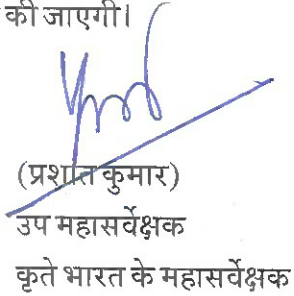 की जाएगी।
(प्रशांत कुमार)
उप महासर्वेक्षक
कृते भारत के महासर्वेक्षक